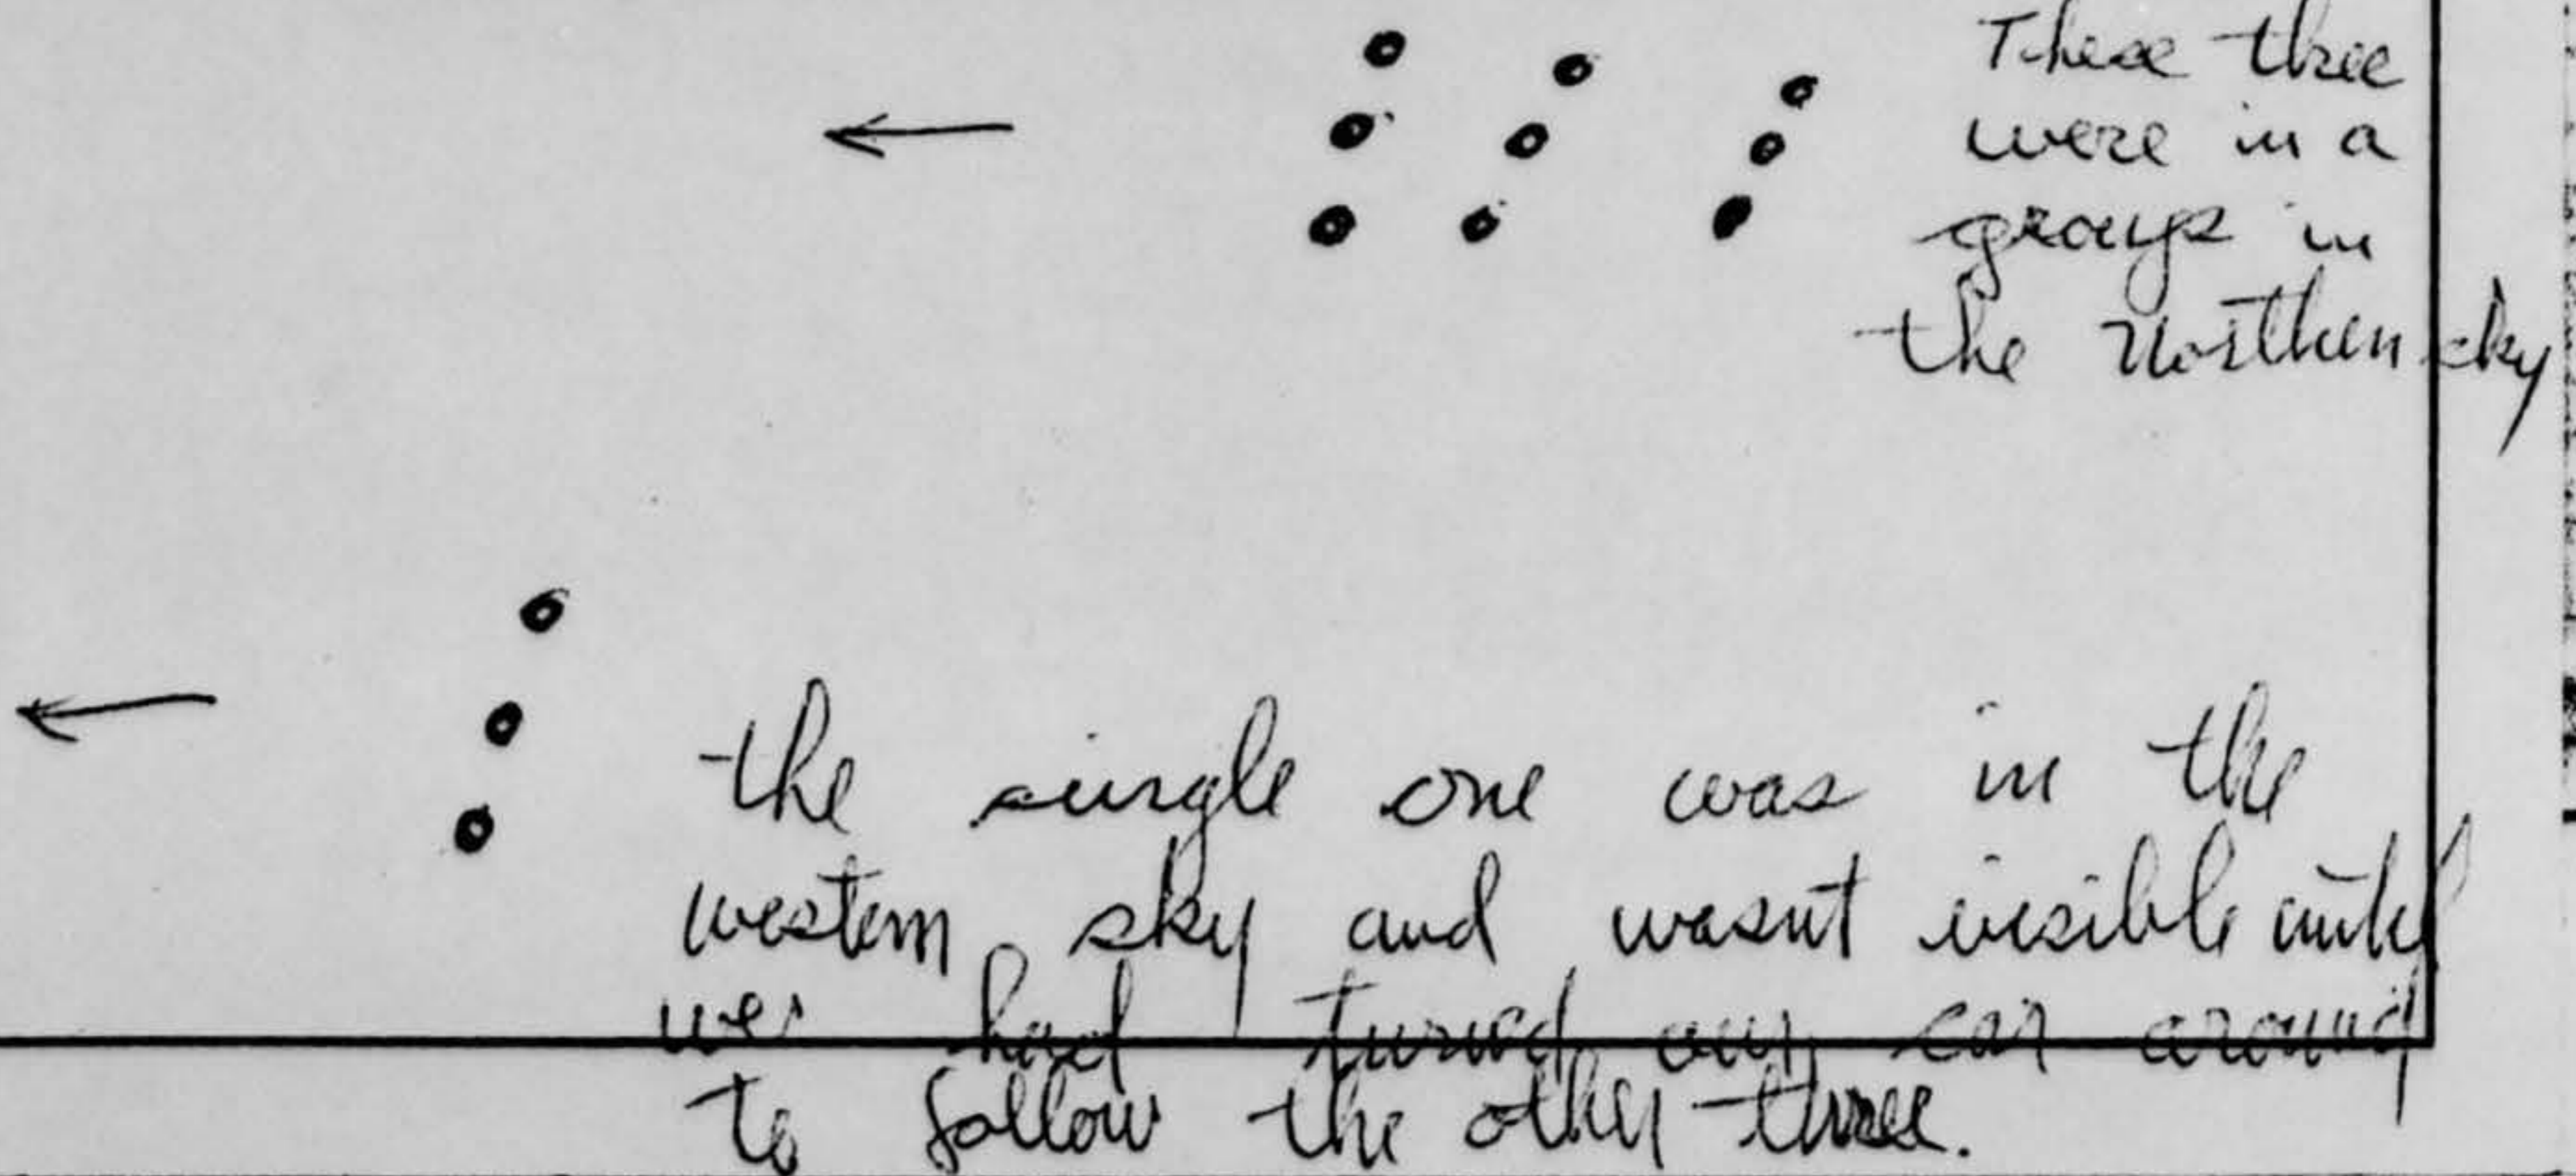 These three
were in a
group in
the Northern sky
the single one was in the
western sky and wasnt visible until
we had turned our car around
to follow the other three.